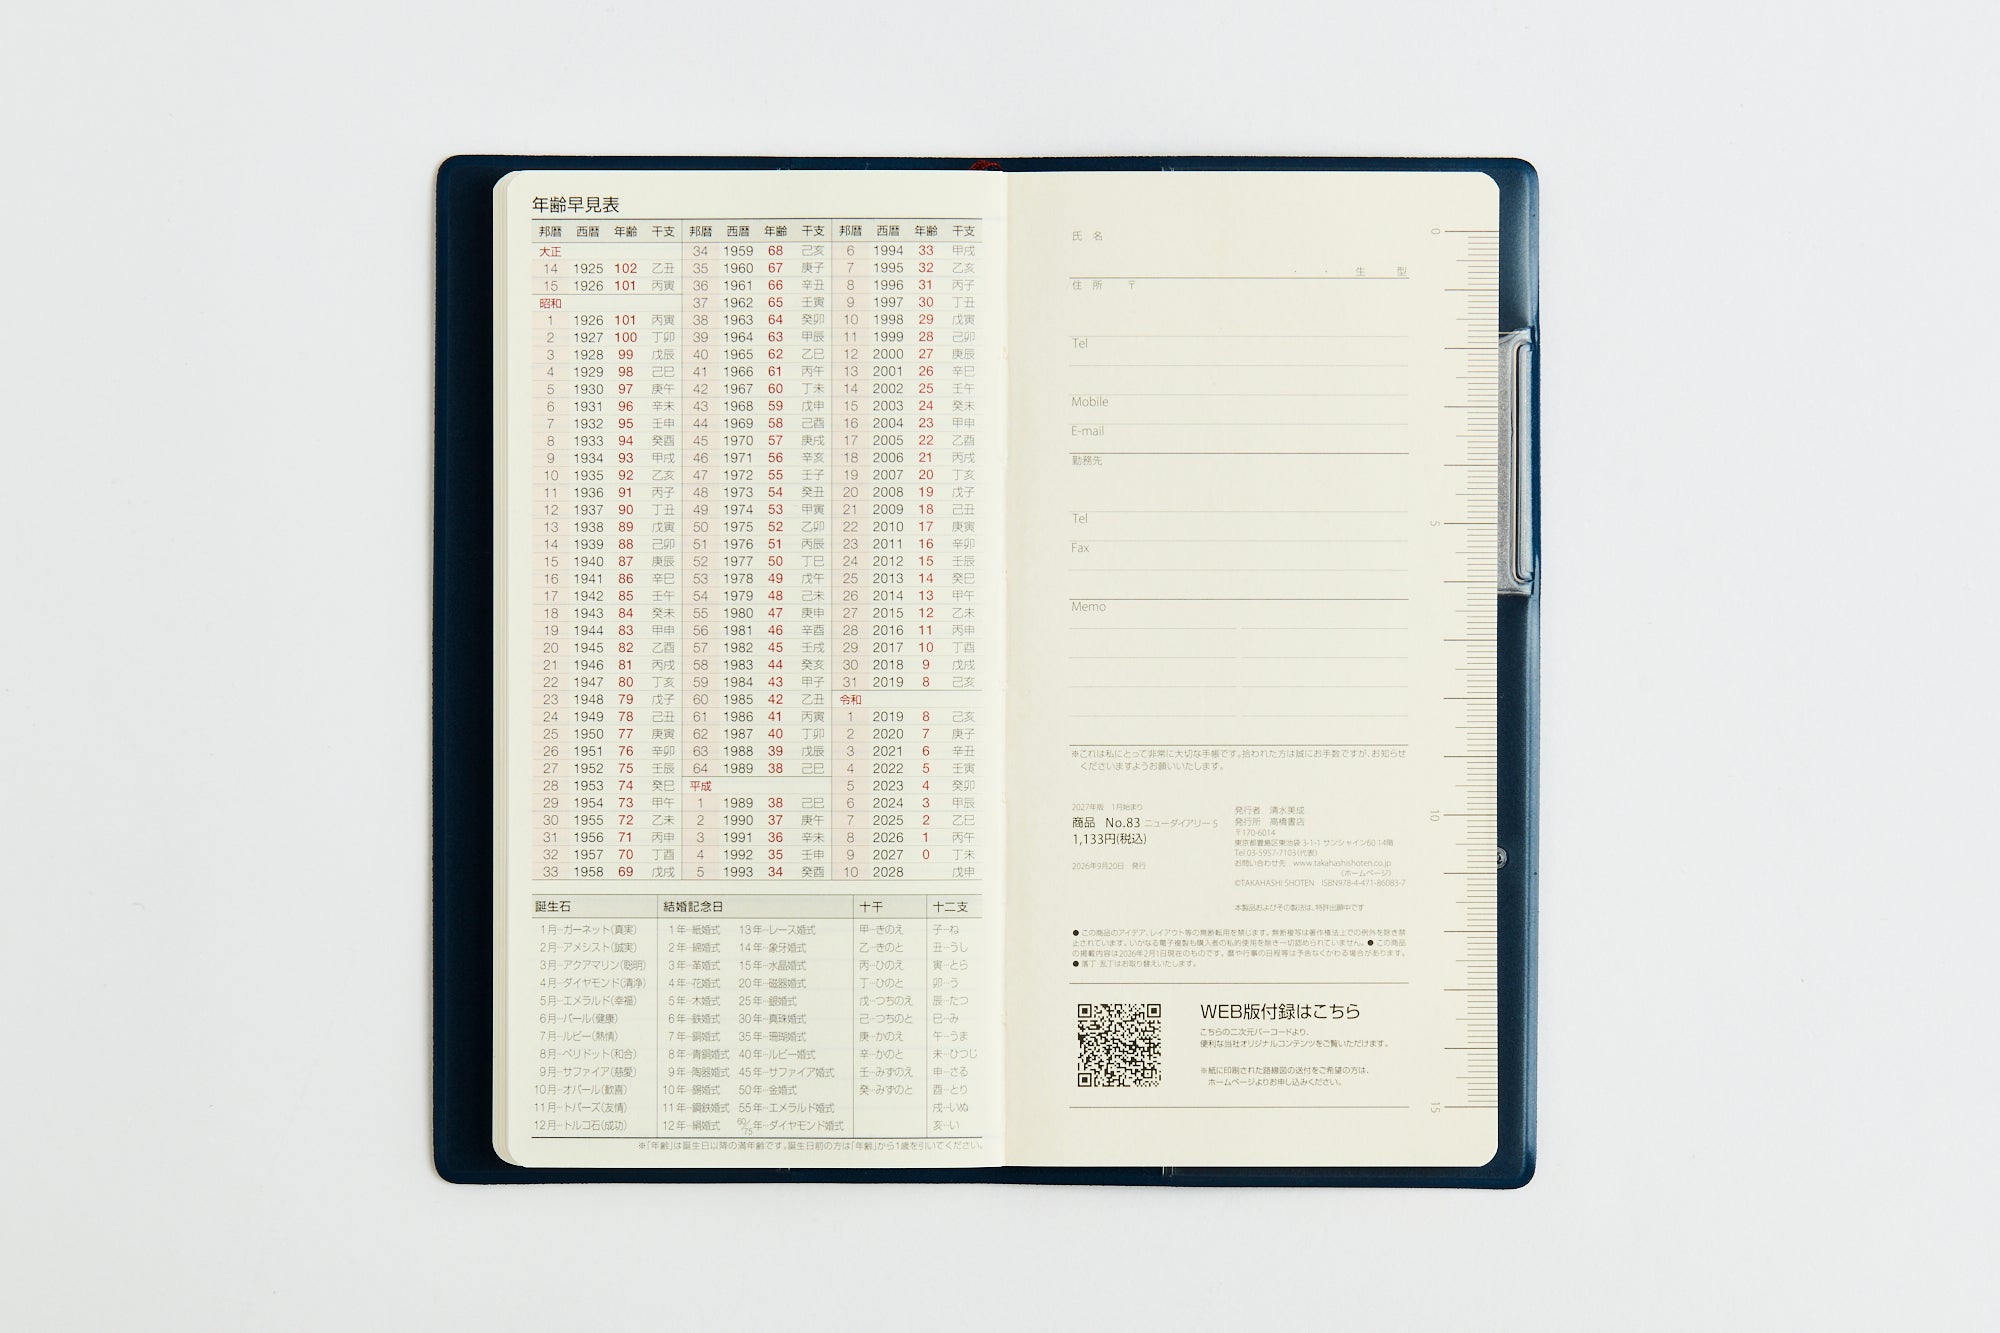 年齢早見表
邦暦 西暦 年齢 干支 邦暦 西暦 年齢 干支 邦暦 西暦 年齢 干支
大正 34 1959 68 己亥 6 1994 33 甲戌
14 1925 102 乙丑 35 1960 67 庚子 7 1995 32 乙亥
15 1926 101 丙寅 36 1961 66 辛丑 8 1996 31 丙子
昭和 37 1962 65 壬寅 9 1997 30 丁丑
1 1926 101 丙寅 38 1963 64 癸卯 10 1998 29 戊寅
2 1927 100 丁卯 39 1964 63 甲辰 11 1999 28 己卯
3 1928 99 戊辰 40 1965 62 乙巳 12 2000 27 庚辰
4 1929 98 己巳 41 1966 61 丙午 13 2001 26 辛巳
5 1930 97 庚午 42 1967 60 丁未 14 2002 25 壬午
6 1931 96 辛未 43 1968 59 戊申 15 2003 24 癸未
7 1932 95 壬申 44 1969 58 己酉 16 2004 23 甲申
8 1933 94 癸酉 45 1970 57 庚戌 17 2005 22 乙酉
9 1934 93 甲戌 46 1971 56 辛亥 18 2006 21 丙戌
10 1935 92 乙亥 47 1972 55 壬子 19 2007 20 丁亥
11 1936 91 丙子 48 1973 54 癸丑 20 2008 19 戊子
12 1937 90 丁丑 49 1974 53 甲寅 21 2009 18 己丑
13 1938 89 戊寅 50 1975 52 乙卯 22 2010 17 庚寅
14 1939 88 己卯 51 1976 51 丙辰 23 2011 16 辛卯
15 1940 87 庚辰 52 1977 50 丁巳 24 2012 15 壬辰
16 1941 86 辛巳 53 1978 49 戊午 25 2013 14 癸巳
17 1942 85 壬午 54 1979 48 己未 26 2014 13 甲午
18 1943 84 癸未 55 1980 47 庚申 27 2015 12 乙未
19 1944 83 甲申 56 1981 46 辛酉 28 2016 11 丙申
20 1945 82 乙酉 57 1982 45 壬戌 29 2017 10 丁酉
21 1946 81 丙戌 58 1983 44 癸亥 30 2018 9 戊戌
22 1947 80 丁亥 59 1984 43 甲子 31 2019 8 己亥
23 1948 79 戊子 60 1985 42 乙丑 令和
24 1949 78 己丑 61 1986 41 丙寅 1 2019 8 己亥
25 1950 77 庚寅 62 1987 40 丁卯 2 2020 7 庚子
26 1951 76 辛卯 63 1988 39 戊辰 3 2021 6 辛丑
27 1952 75 壬辰 64 1989 38 己巳 4 2022 5 壬寅
28 1953 74 癸巳 平成 5 2023 4 癸卯
29 1954 73 甲午 1 1989 38 己巳 6 2024 3 甲辰
30 1955 72 乙未 2 1990 37 庚午 7 2025 2 乙巳
31 1956 71 丙申 3 1991 36 辛未 8 2026 1 丙午
32 1957 70 丁酉 4 1992 35 壬申 9 2027 0 丁未
33 1958 69 戊戌 5 1993 34 癸酉 10 2028 戊申
誕生石 結婚記念日 十干 十二支
1月…ガーネット(真実) 1年…紙婚式 13年…レース婚式 甲…きのえ 子…ね
2月…アメシスト(誠実) 2年…綿婚式 14年…象牙婚式 乙…きのと 丑…うし
3月…アクアマリン(聡明) 3年…革婚式 15年…水晶婚式 丙…ひのえ 寅…とら
4月…ダイヤモンド(清浄) 4年…花婚式 20年…磁器婚式 丁…ひのと 卯…う
5月…エメラルド(幸福) 5年…木婚式 25年…銀婚式 戊…つちのえ 辰…たつ
6月…パール(健康) 6年…鉄婚式 30年…真珠婚式 己…つちのと 巳…み
7月…ルビー(熱情) 7年…銅婚式 35年…珊瑚婚式 庚…かのえ 午…うま
8月…ペリドット(和合) 8年…青銅婚式 40年…ルビー婚式 辛…かのと 未…ひつじ
9月…サファイア(慈愛) 9年…陶器婚式 45年…サファイア婚式 壬…みずのえ 申…さる
10月…オパール(歓喜) 10年…錫婚式 50年…金婚式 癸…みずのと 酉…とり
11月…トパーズ(友情) 11年…鋼鉄婚式 55年…エメラルド婚式 戌…いぬ
12月…トルコ石(成功) 12年…絹婚式 60/75年…ダイヤモンド婚式 亥…い
※「年齢」は誕生日以降の満年齢です。誕生日前の方は「年齢」から1歳を引いてください。
氏 名
・ ・ 生 型
住 所 〒
Tel
Mobile
E-mail
勤務先
Tel
Fax
Memo
※これは私にとって非常に大切な手帳です。拾われた方は誠にお手数ですが、お知らせ
くださいますようお願いいたします。
2027年版 1月始まり
商品 No.83 ニューダイアリー S
1,133円(税込)
2026年9月20日 発行
発行者 清水美成
発行所 高橋書店
〒170-6014
東京都豊島区東池袋 3-1-1 サンシャイン60 14階
Tel 03-5957-7103(代表)
お問い合わせ先 www.takahashishoten.co.jp
(ホームページ)
©TAKAHASHI SHOTEN ISBN978-4-471-86083-7
本製品およびその製法は、特許出願中です
● この商品のアイデア、レイアウト等の無断転用を禁じます。無断複写は著作権法上での例外を除き禁
止されています。いかなる電子複製も購入者の私的使用を除き一切認められていません。● この商品
の掲載内容は2026年2月1日現在のものです。暦や行事の日程等は予告なくかわる場合があります。
● 落丁・乱丁はお取り替えいたします。
WEB版付録はこちら
こちらの二次元バーコードより、
便利な当社オリジナルコンテンツをご覧いただけます。
※紙に印刷された路線図の送付をご希望の方は、
ホームページよりお申し込みください。
0
5
10
15